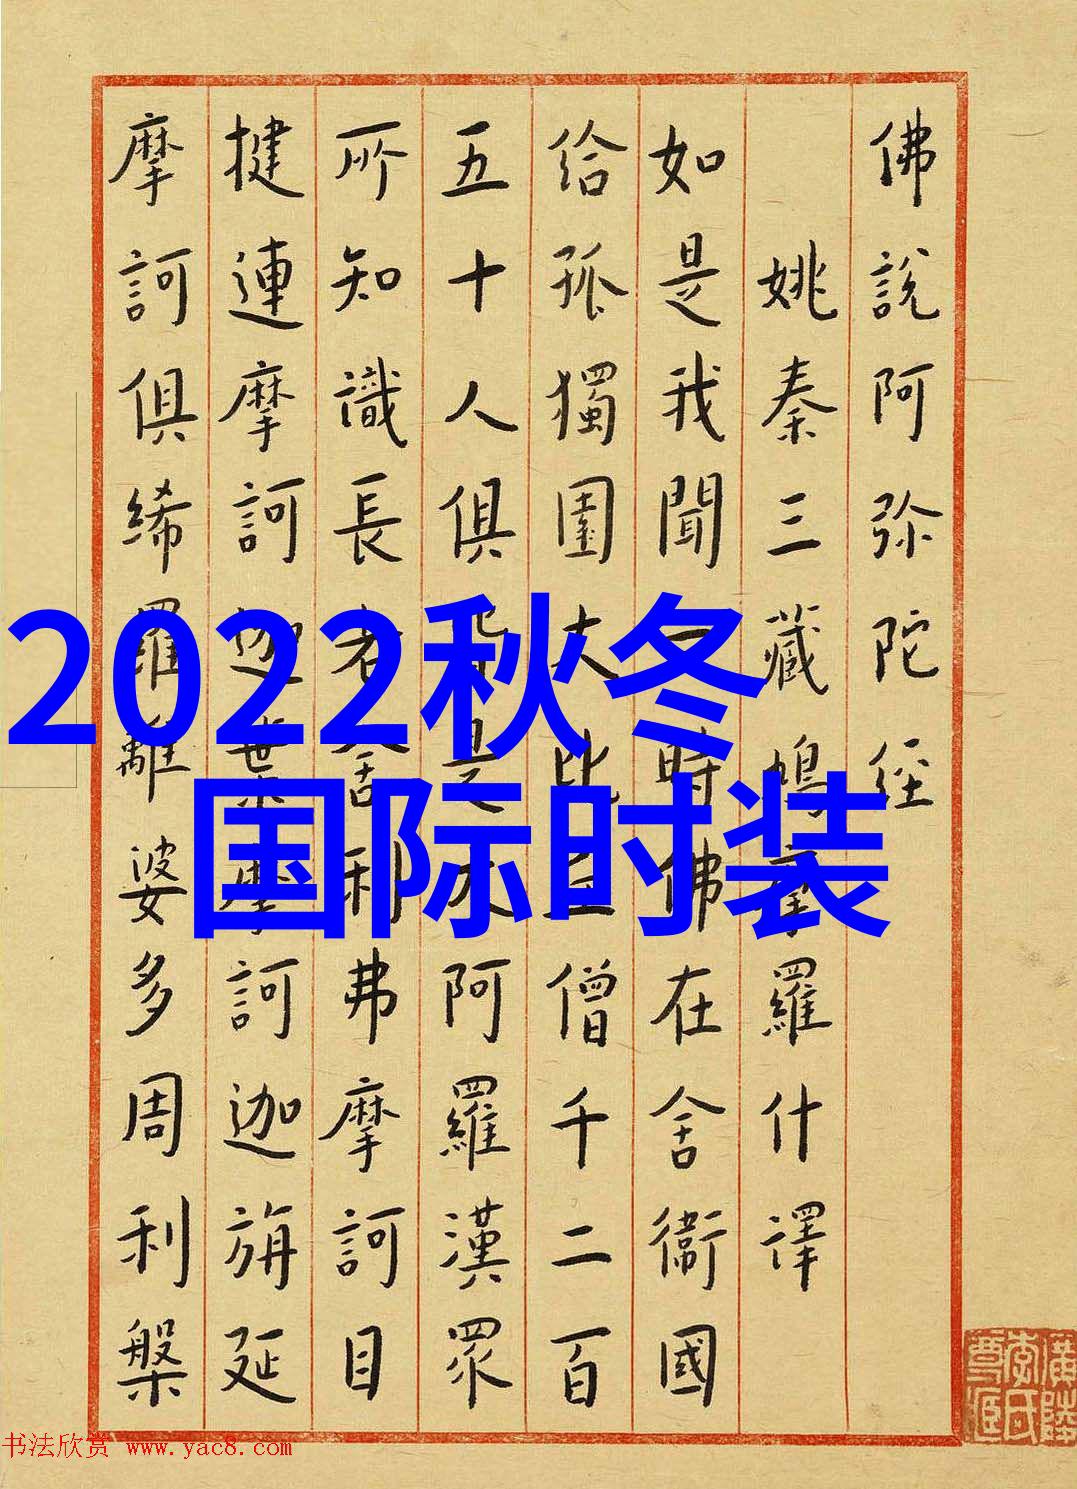 佛說阿弥陀經
姚秦三藏鳩摩羅什譯
如是我聞一時佛在舍衛國
给孤獨園大比丘僧千二百
五十人俱皆是大阿羅漢眾
所知識長老舍利弗摩訶目
揵連摩訶迦葉摩訶迦旃延
摩訶俱絺羅離婆多周利槃
2022秋冬
国际时装
书法欣赏 www.yac8.com